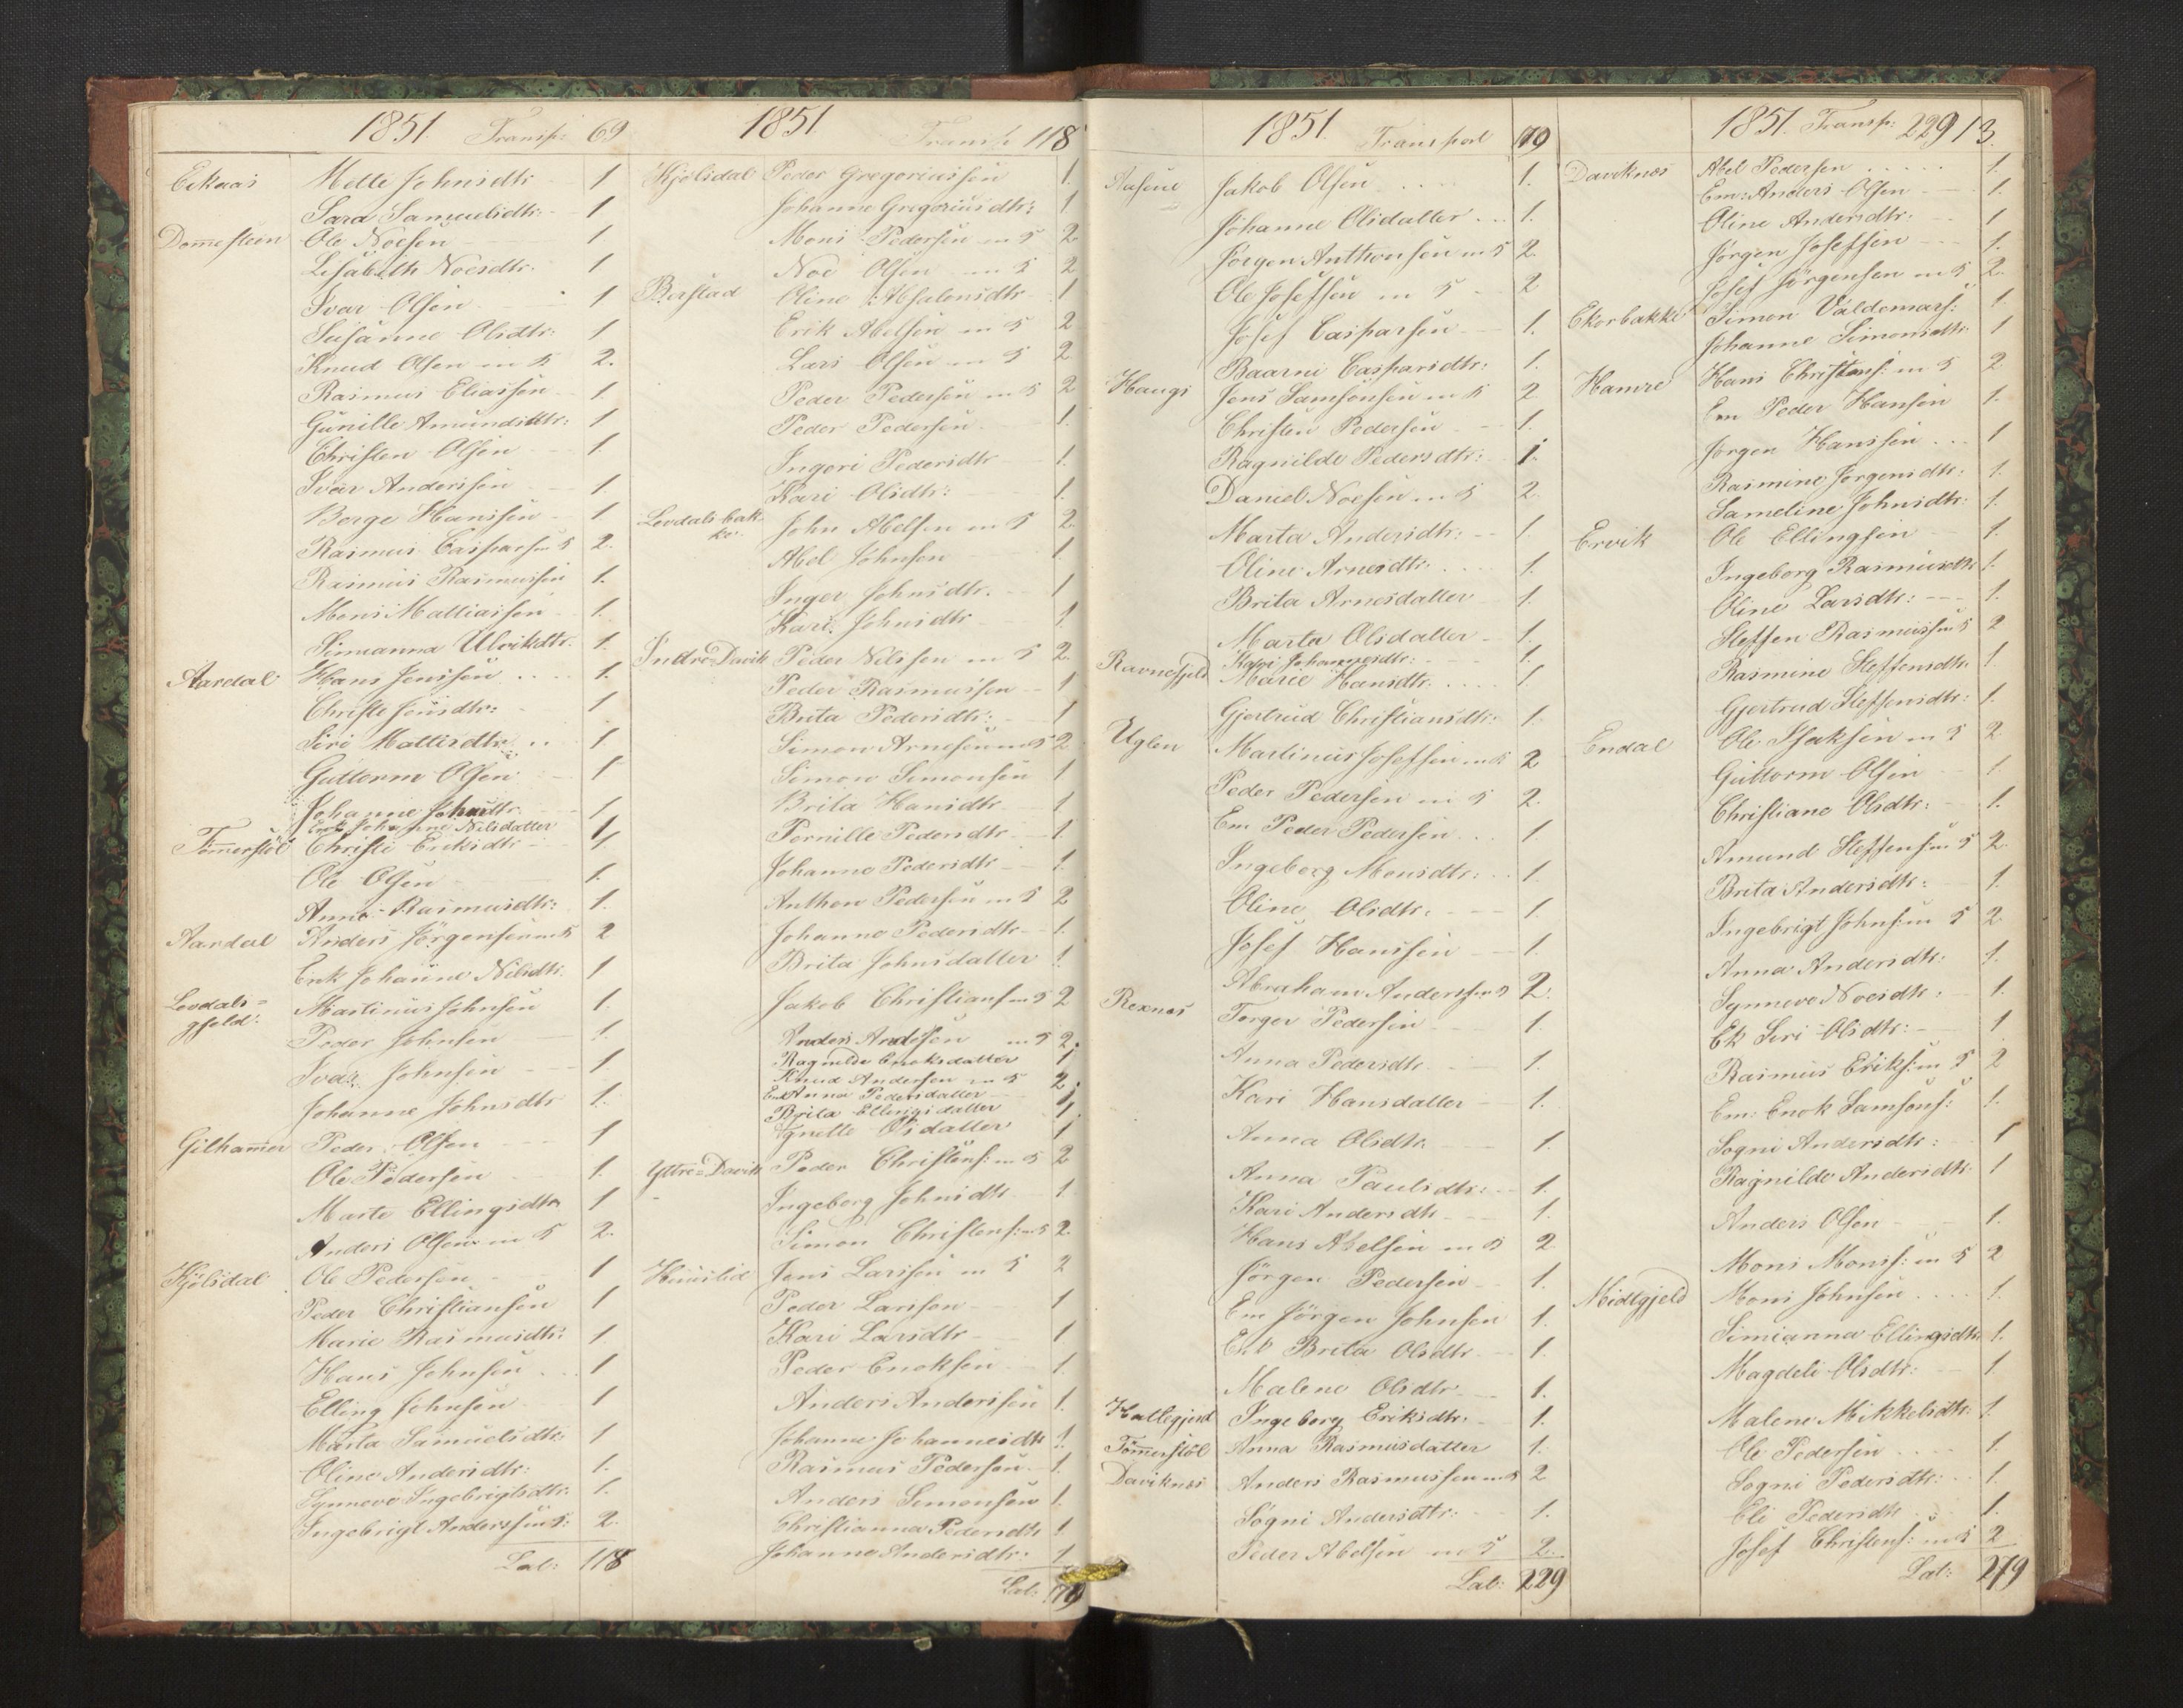 1851. Transp: 69
Eiknæs Mette Johnsdtr 1
Sara Samuelsdtr: 1
Domesteen Ole Noesen 1
Lisabeth Noesdtr: 1
Ivar Olsen 1
Susanne Olsdtr: 1
Knud Olsen m H 2.
Rasmus Eliassen 1
Gunille Amundsdtr: 1
Christen Olsen 1
Ivar Anderssen 1.
Berge Hanssen 1
Rasmus Casparsen H 2.
Rasmus Rasmussen 1.
Mons Mattiassen 1.
Simianna Ulriksdtr. 1.
Aardal Hans Jenssen 1.
Christe Jensdtr: 1
Siri Mattisdtr 1.
Guttorm Olsen 1
Johanne Johnsdtr. 1
Enke Johanne Nilsdatter 1
Tømmerstøl Christi Eriksdtr 1
Ole Olsen 1.
Anne Rasmusdtr: 1.
Aardal Anders Jørgensen m H 2
Enk Johanne Nilsdtr. 1
Levdals=
gjeld: Martinus Johnsen 1.
Peder Johnsen 1.
Ivar Johnsen 1
Johanne Johnsdtr 1.
Gilhammer Peder Olsen 1
Ole Pedersen 1.
Marte Ellingsdtr 1
Anders Olsen m H 2.
Hjølsdal Ole Pedersen 1
Peder Christiansen 1
Marie Rasmusdtr: 1
Hans Johnsen 1
Elling Johnsen 1
Marta Samuelsdtr: 1
Oline Andersdtr: 1.
Synneve Ingebrigtsdtr: 1.
Ingebrigt Anderssen H: 2.
Lat: 118
1851 Transp 118
Hjølsdal Peder Gregoriussen 1.
Johanne Gregoriusdtr: 1
Mons Pedersen m H 2
Noe Olsen m H 2
Berstad Oline Absalonsdtr 1
Erik Abelsen m H 2
Lars Olsen m H 2
Peder Pedersen m H 2
Peder Pedersen 1.
Ingeri Pedersdtr 1.
Kari Olsdtr: 1.
Levdalsbak-
ke. John Abelsen m H 2.
Abel Johnsen 1.
Inger Johnsdtr. 1
Kari Johnsdtr 1.
Indre=Davik Peder Nilssen m H 2.
Peder Rasmussen 1
Brita Pedersdtr: 1
Simon Arnesen m H 2
Simon Simonsen 1
Brita Hansdtr. 1
Pernille Pedersdtr 1.
Johanne Pedersdtr 1.
Anthon Pedersen m H 2
Johanne Pedersdtr 1.
Brita Johnsdatter 1.
Jakob Christians: m H 2
Anders Andersen m H 2.
Ragnilde Enoksdatter 1
Knud Andersen m H 2.
Enk Anna Pedersdatter 1
Brita Ellingsdatter 1.
Agnette Olsdatter 1
Yttre=Davik Peder Christens: m H 2
Ingeborg Johnsdtr. 1
Simon Christens: m H 2.
Jens Larssen m H 2
Peder Larssen 1
Kari Larsdtr 1
Peder Enoksen 1.
Anders Anderssen 1.
Johanne Johannesdtr 1.
Rasmus Pedersen 1.
Anders Simonsen 1.
Christianna Pedersdtr 1.
Johanne Andersdtr: 1
Lat: 179
1851. Transport 179
Aasene Jakob Olsen 1.
Johanne Olsdatter 1.
Jørgen Anthonsen m H 2.
Ole Josefsen m H 2
Josef Casparsen 1.
Baarni Casparsdtr: 1.
Haugs Jens Samsonsen m H 2
Christen Pedersen 1.
Ragnilde Pedersdtr: 1.
Daniel Noesen m H 2.
Marta Andersdtr: 1.
Oline Arnesdtr. 1.
Brita Arnesdatter 1.
Marta Olsdatter 1.
Ravnefjeld Kari Johannesdtr: 1.
Marie Hansdtr. 1.
Gjertrud Christiansdtr: 1.
Uglen Martinus Josefsen m H 2
Peder Pedersen m H 2.
Em Peder Pedersen 1.
Ingeborg Monsdtr: 1.
Oline Olsdtr. 1.
Josef Hanssen 1.
Abraham Anderssen H 2.
Rexnæs Torger Pedersen 1.
Anna Pedersdtr. 1.
Kari Hansdatter 1.
Anna Olsdtr. 1.
Anna Paulsdtr: 1.
Kari Andersdtr 1.
Hans Abelsen m H 2
Jørgen Pedersen 1.
Em Jørgen Johnsen 1.
Enk Brita Olsdtr 1.
Malene Olsdtr 1.
Hallegjerd Ingeborg Eriksdtr. 1.
Tømmerstøl Anna Rasmusdatter 1.
Daviknæs Anders Rasmussen m H 2
Søgni Andersdtr: 1.
Peder Abelsen m H 2.
Lat: 229
1851. Transp: 229 / 3.
Daviknæs Abel Pedersen 1.
Em: Anders Olsen 1.
Oline Andersdtr. 1
Jørgen Josefsen 1.
Josef Jørgensen m H 2.
Ekorbakke Simon Valdemars: 1.
Johanne Simonsdtr. 1
Hamre Hans Christens: m H 2
Em Peder Hansen 1.
Jørgen Hanssen 1
Rasmine Jørgensdtr: 1.
Sameline Johnsdtr: 1.
Ervik Ole Ellingsen 1.
Ingeborg Rasmusdtr 1.
Oline Larsdtr: 1.
Steffen Rasmussen H 2
Rasmine Steffensdtr. 1
Gjertrud Steffensdtr: 1.
Endal Ole Isaksen m H 2
Guttorm Olsen 1
Christiane Olsdtr: 1.
Amund Steffens: m H 2.
Brita Andersdtr: 1.
Ingebrigt Johns: m H 2
Anna Andersdtr: 1.
Synneve Noesdtr. 1.
Ek Siri Olsdtr: 1
Rasmus Eriks: m H 2
Em: Enok Samsons: 1.
Sogni Andersdtr: 1
Ragnilde Andersdtr. 1
Anders Olsen 1.
Mons Monss: m H 2
Midtgjeld Mons Johnsen 1.
Simianna Ellingsdtr. 1.
Magdeli Olsdtr: 1
Malene Mikkelsdtr: 1.
Ole Pedersen 1.
Sogni Pedersdtr: 1.
Eli Pedersdtr. 1.
Josef Christens: m H 2
Lat: 279